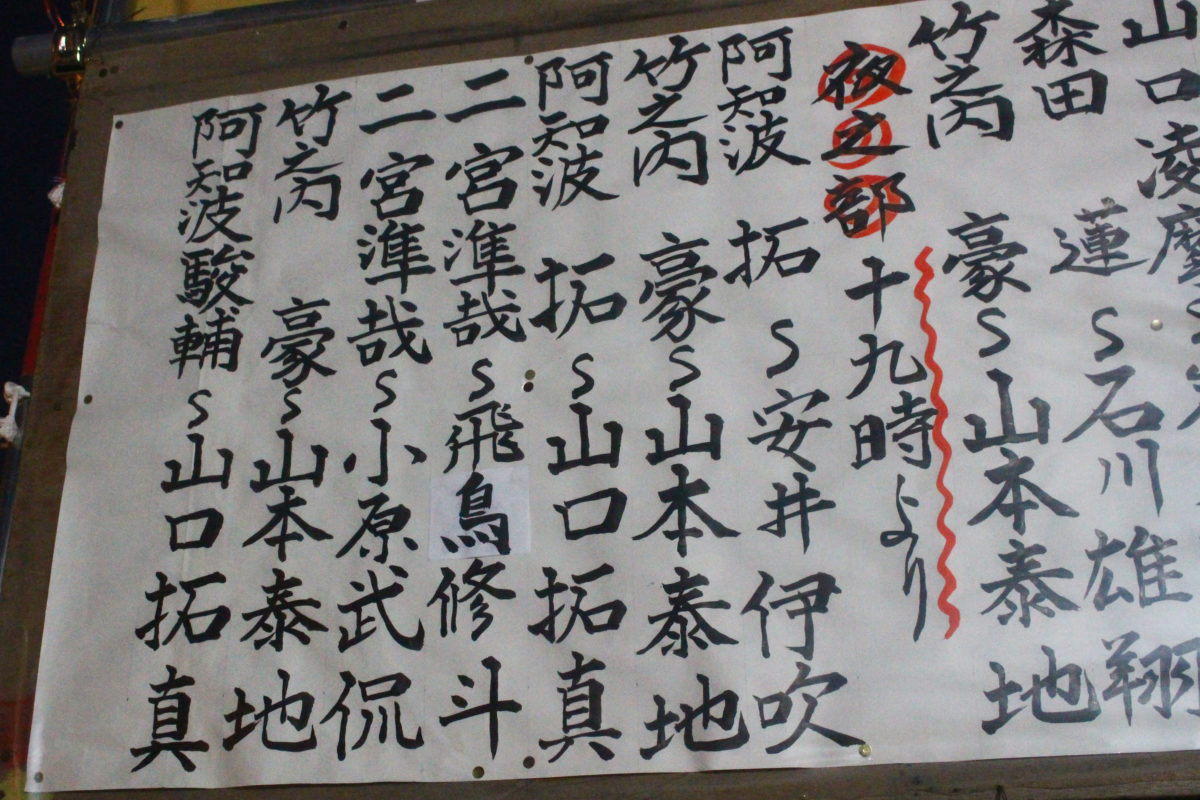 山口凌
森田 蓮〜石川雄翔
竹之内 豪〜山本泰地
夜之部 十九時より
阿知波 拓〜安井伊吹
竹之内 豪〜山本泰地
阿知波 拓〜山口拓真
二宮準哉〜飛鳥修斗
二宮準哉〜小原武侃
竹之内 豪〜山本泰地
阿知波駿輔〜山口拓真